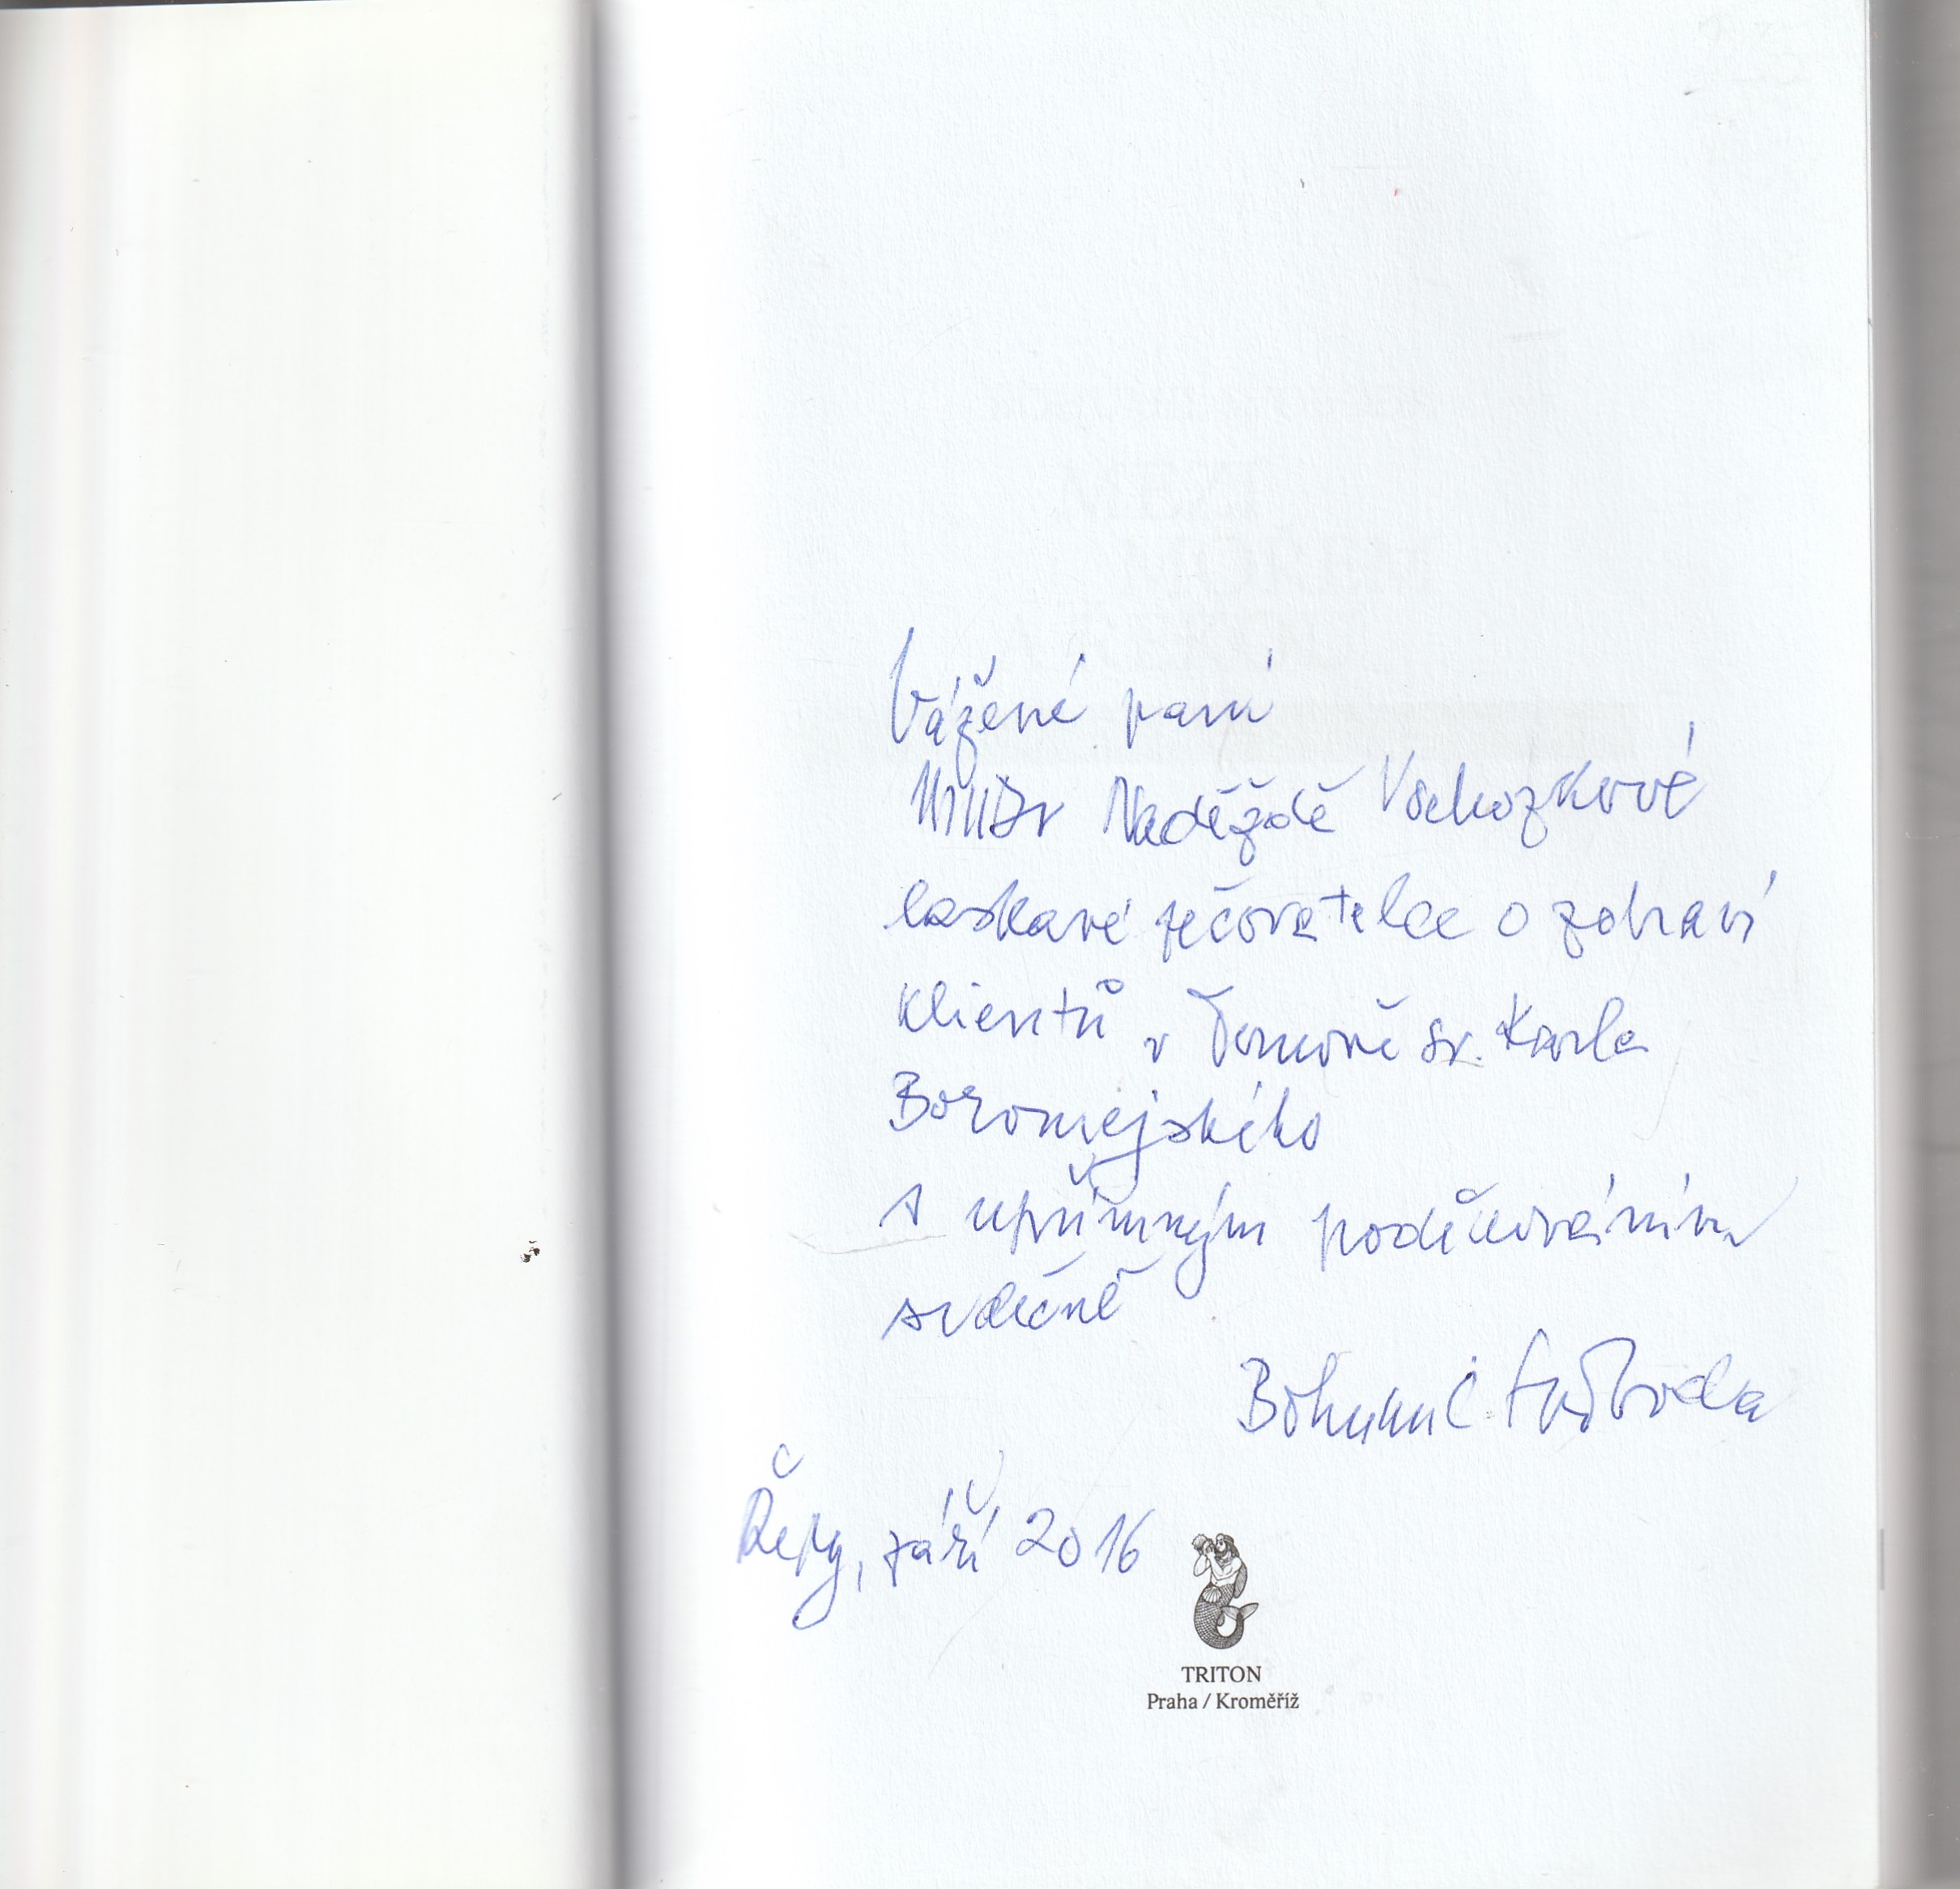 Vážené paní
MUDr Naděždě
laskavé pečovatelce o zdraví
klientů v Domově sv. Karla
Boromejského
s upřímným poděkováním
srdečně
Bohumil Svoboda
Řepy, září 2016
TRITON
Praha / Kroměříž